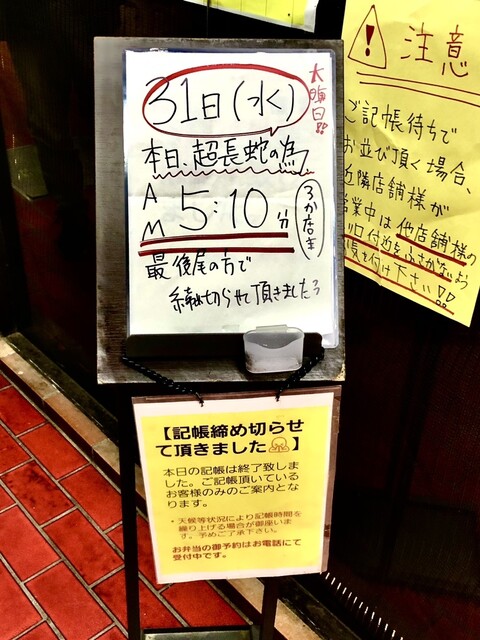 31日(水)
大晦日!!
本日、超長蛇の為
AM 5:10分
最後尾の方で
締切らせて頂きました
【記帳締め切らせ
て頂きました】
本日の記帳は終了致しま
した。ご記帳頂いている
お客様のみのご案内とな
ります。
・天候等状況により記帳時間を
繰り上げる場合が御座いま
す。予めご了承下さい。
お弁当の御予約はお電話にて
受付中です。
注意
ご記帳待ちで
お並び頂く場合、
近隣店舗様が
営業中は他店舗様の
入口付近をふさがないよう
気を付け下さい!!